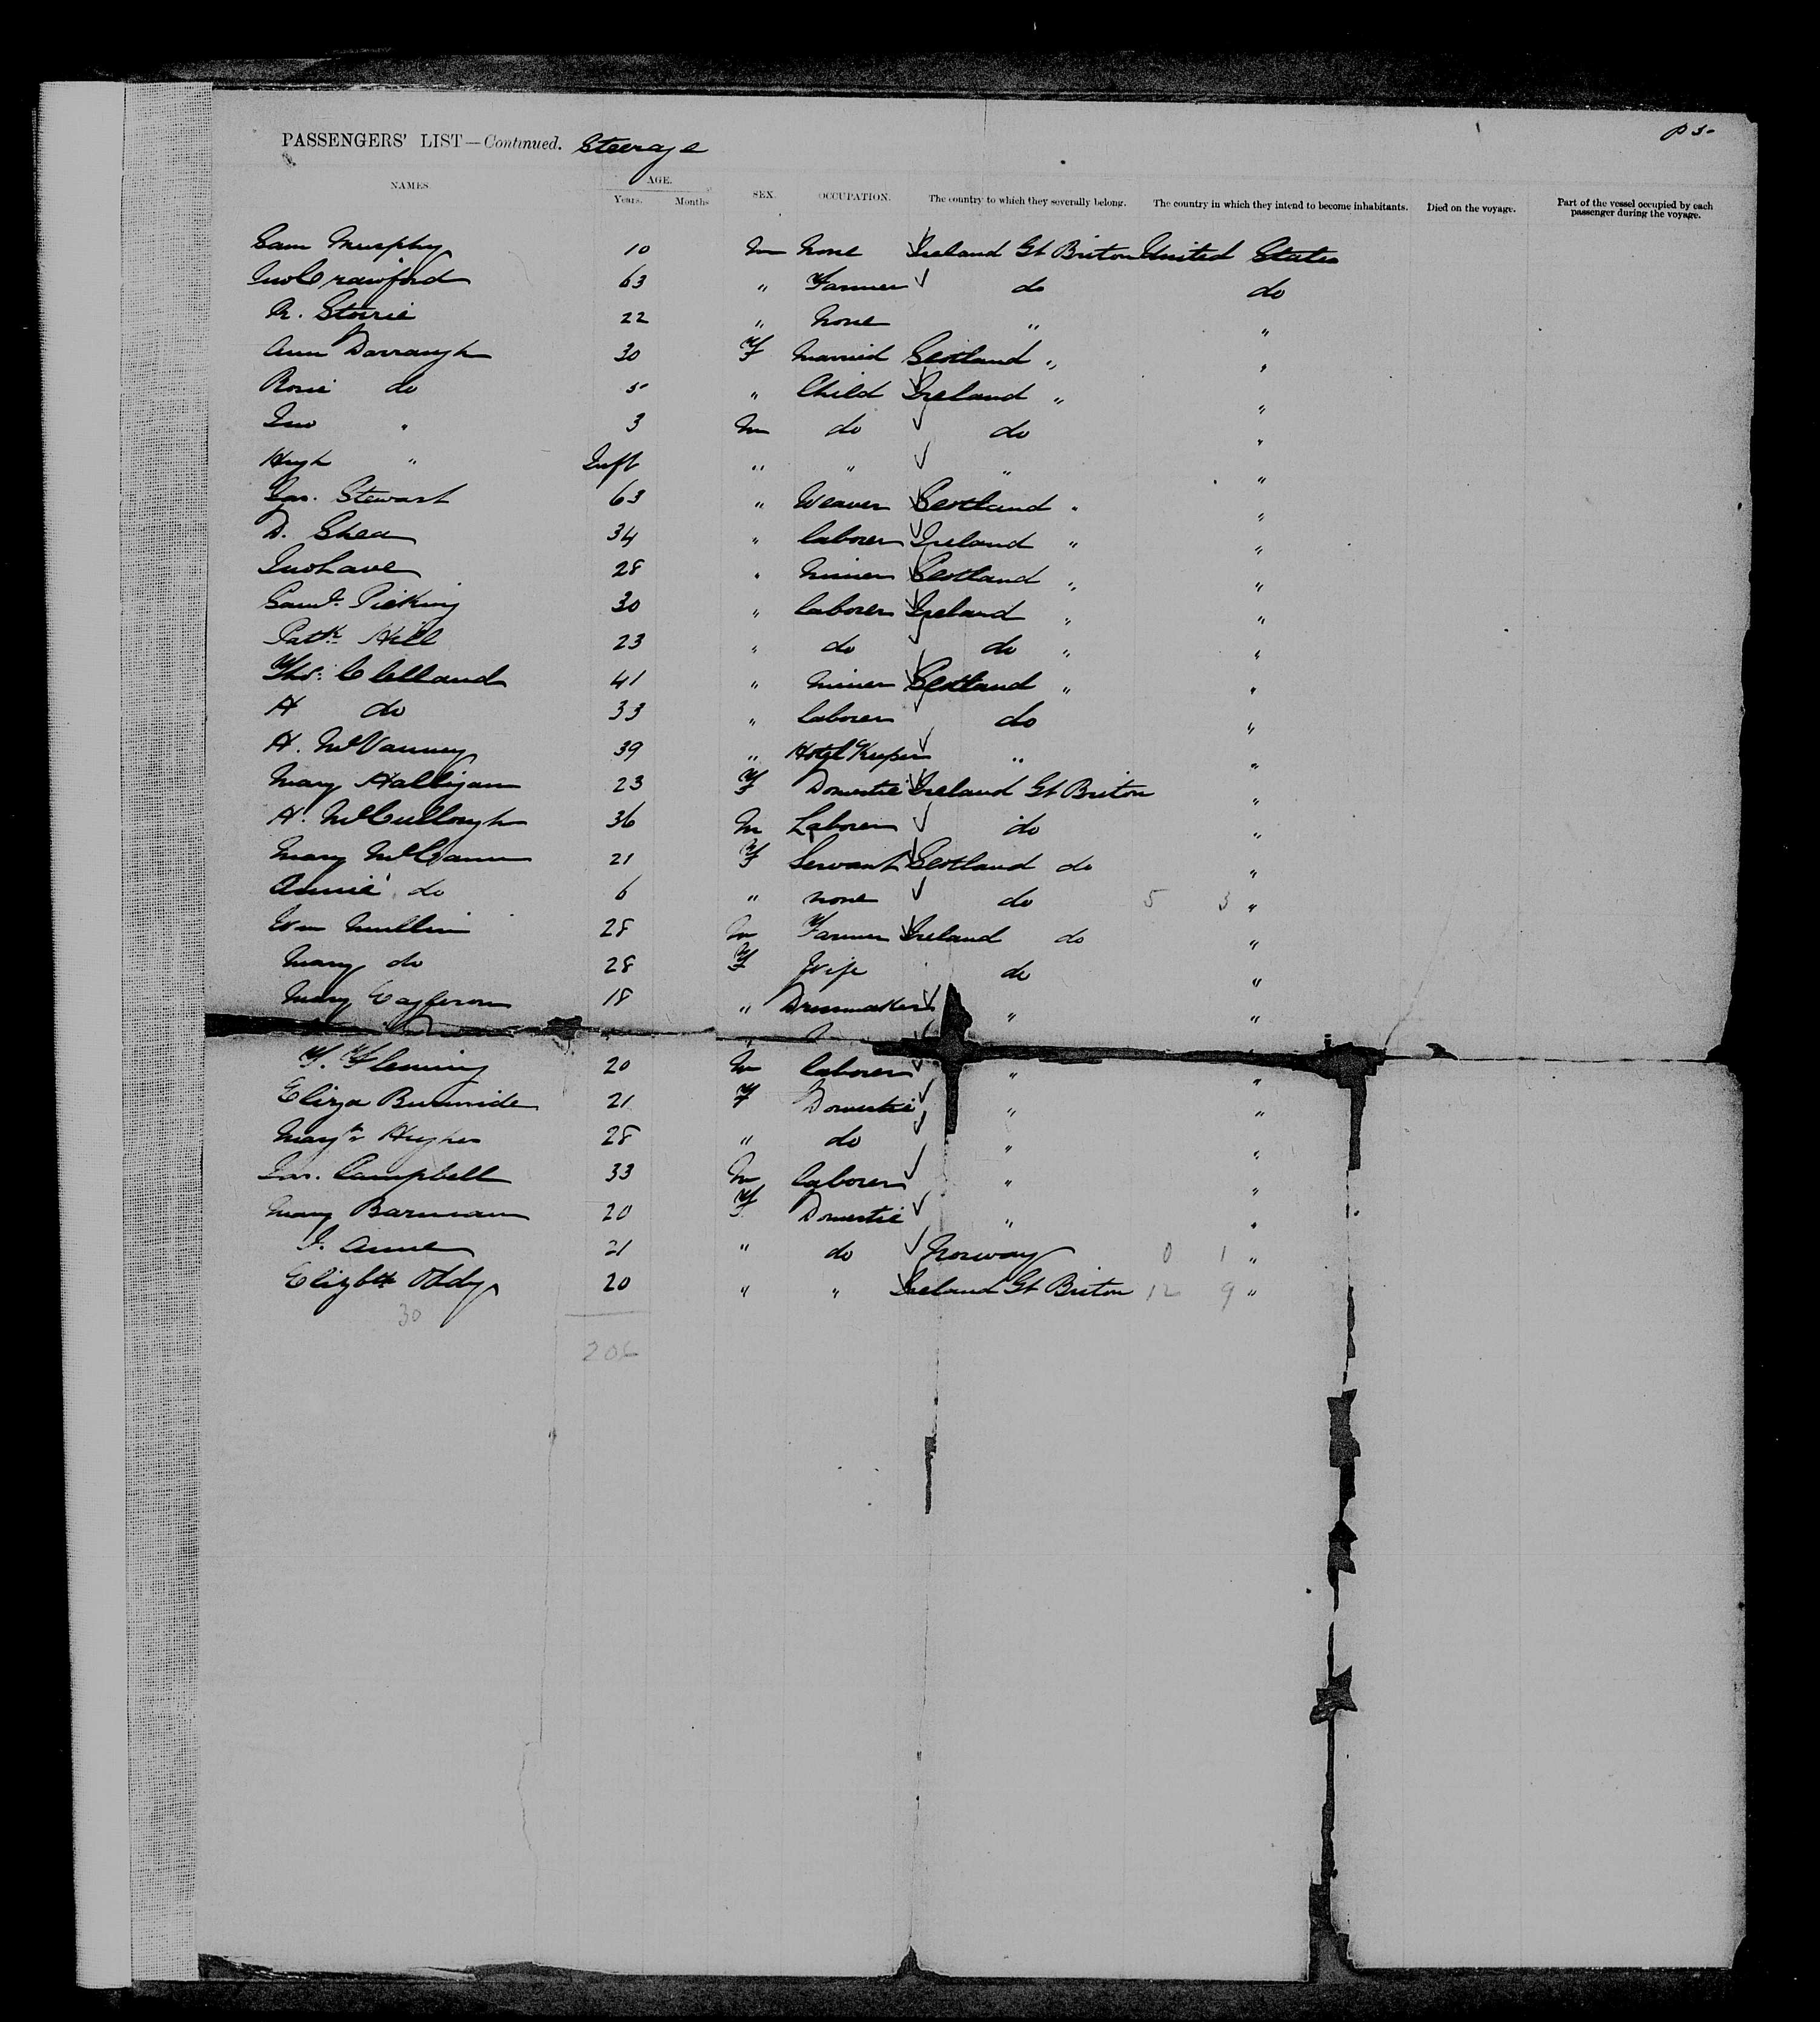 p 5
PASSENGERS' LIST—Continued. Steerage
NAMES. AGE. SEX. OCCUPATION. The country to which they severally belong. The country in which they intend to become inhabitants. Died on the voyage. Part of the vessel occupied by each passenger during the voyage.
Years. Months
Sam Murphy 10 m None Ireland Gt Briton United States
Jno Crawford 63 " Farmer do do
R. Storrie 22 " None " "
Ann Darraugh 30 F Married Scotland " "
Rosie do 5 " Child Ireland " "
Jno " 3 m do do "
Hugh " Inft " " " "
Jas. Stewart 63 " Weaver Scotland " "
D. Shea 34 " laborer Ireland " "
Jno Lave 28 " Miner Scotland " "
Saml. Picking 30 " laborer Ireland " "
Patk Hill 23 " do do " "
Thos. Clelland 41 " Miner Scotland " "
A do 33 " laborer do "
A. McVanney 39 " Hotel Keeper " "
Mary Halligan 23 F Domestic Ireland Gt Briton "
A. McCullough 36 m Laborer do "
Mary McCann 21 F Servant Scotland do "
Annie do 6 " none do 5 3 "
Wm Mullin 28 m Farmer Ireland do "
Mary do 28 F Wife do "
Mary 18 " Dressmaker " "
F. Fleming 20 m laborer " "
Eliza Burnside 21 F Domestic " "
Magt Hughes 28 " do " "
Jas. Campbell 33 m laborer " "
Mary Barman 20 F Domestic " "
J. Anne 21 " do Norway 0 1 "
Elizbth Oddy 20 " " Ireland Gt Briton 12 9 "
30